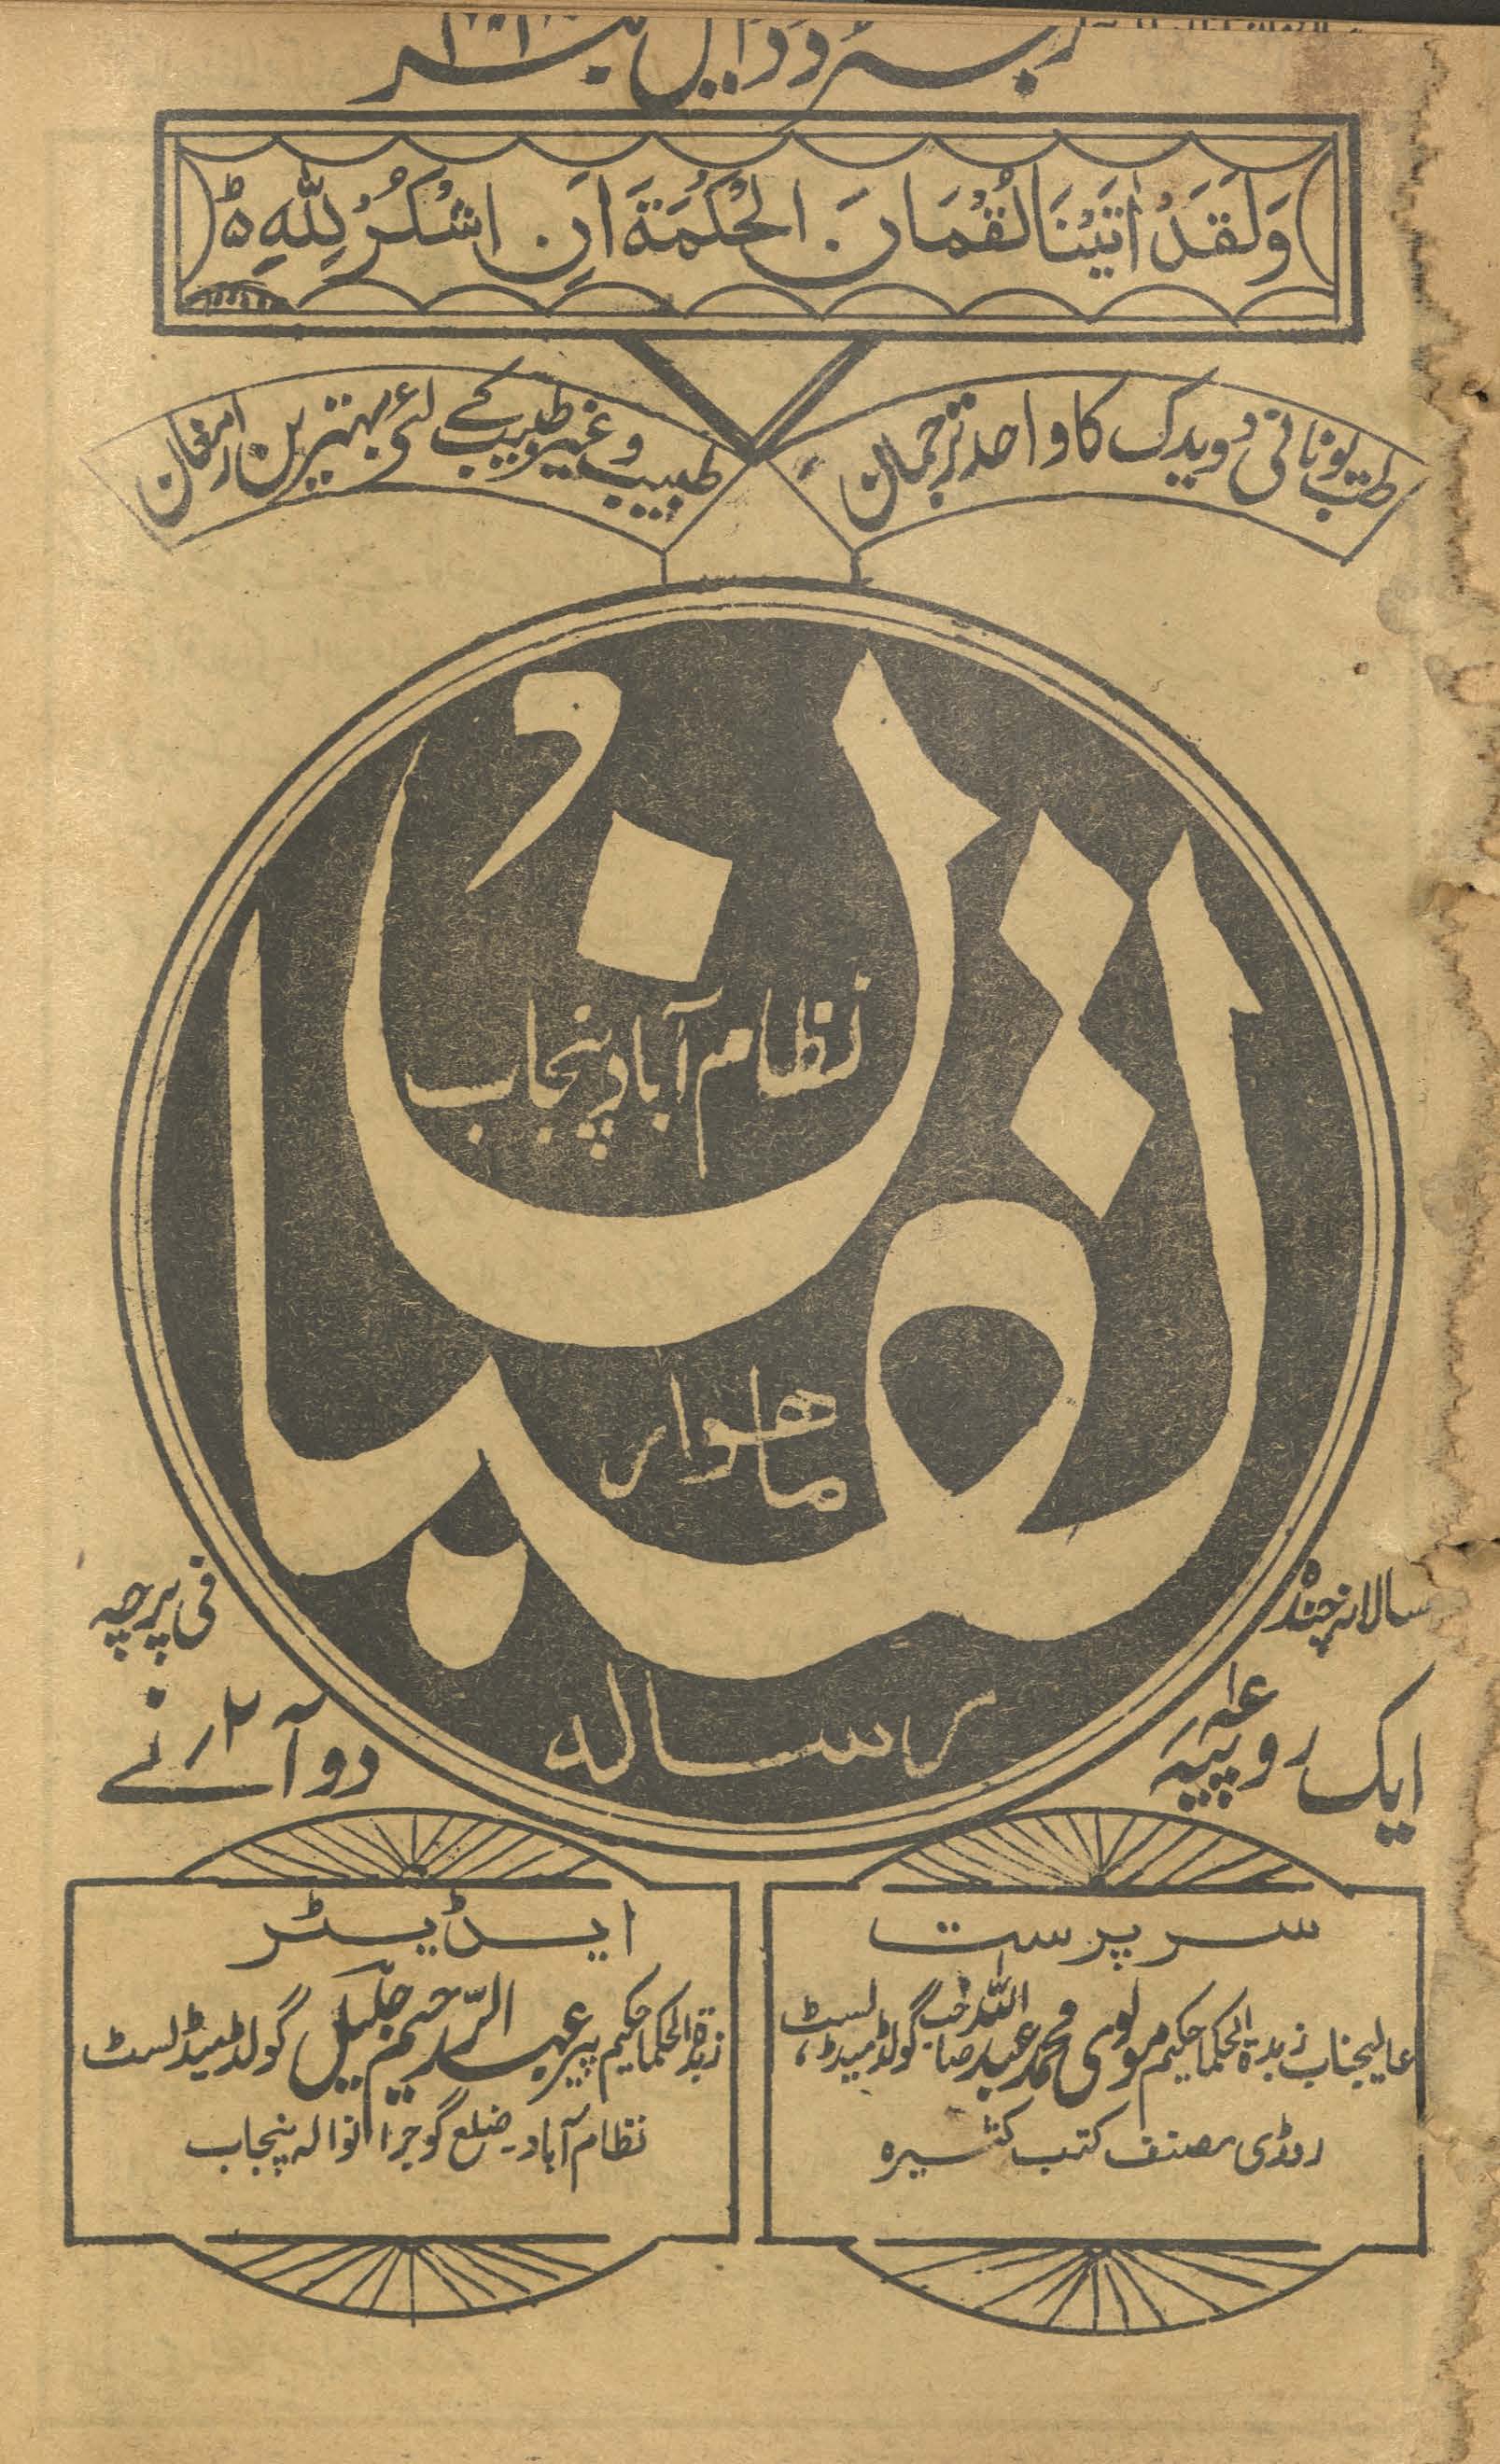 رجسٹرڈ ایل نمبر
وَلَقَدْ اٰتَيْنَا لُقْمَانَ الْحِكْمَةَ اَنِ اشْكُرْ لِلّٰهِ ط
طب یونانی و ویدک کا واحد ترجمان
طبیب و غیر طبیب کے لئے بہترین ارمغان
لقمان
نظام آباد پنجاب
ماھوار
رسالہ
سالانہ چندہ
ایک روپیہ
فی پرچہ
دو آنے ۲؍
سرپرست
عالیجناب زبدۃ الحکما حکیم مولوی محمد عبد اللہ صاحب گولڈ میڈلسٹ،
روڈی مصنف کتب کثیرہ
ایڈیٹر
زبدۃ الحکما حکیم پیر عبد الرّحیم جلیل گولڈ میڈلسٹ
نظام آباد۔ ضلع گوجرانوالہ پنجاب